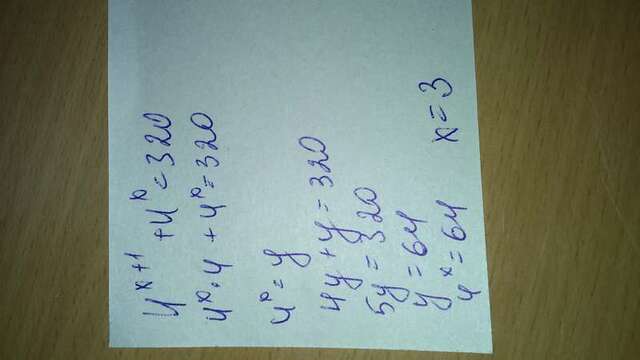 4^{x+1} + 4^x = 320
4^x · 4 + 4^x = 320
4^x = y
4y + y = 320
5y = 320
y = 64
4^x = 64 x = 3